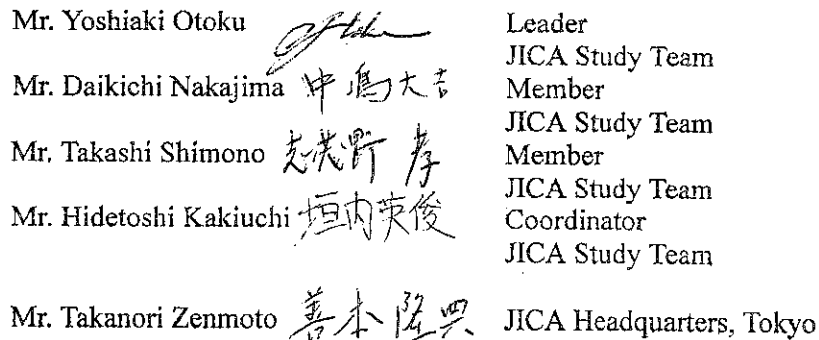 Mr. Yoshiaki Otoku Leader
JICA Study Team
Mr. Daikichi Nakajima 中嶋大吉 Member
JICA Study Team
Mr. Takashi Shimono 志茂野 孝 Member
JICA Study Team
Mr. Hidetoshi Kakiuchi 垣内英俊 Coordinator
JICA Study Team
Mr. Takanori Zenmoto 善本隆典 JICA Headquarters, Tokyo